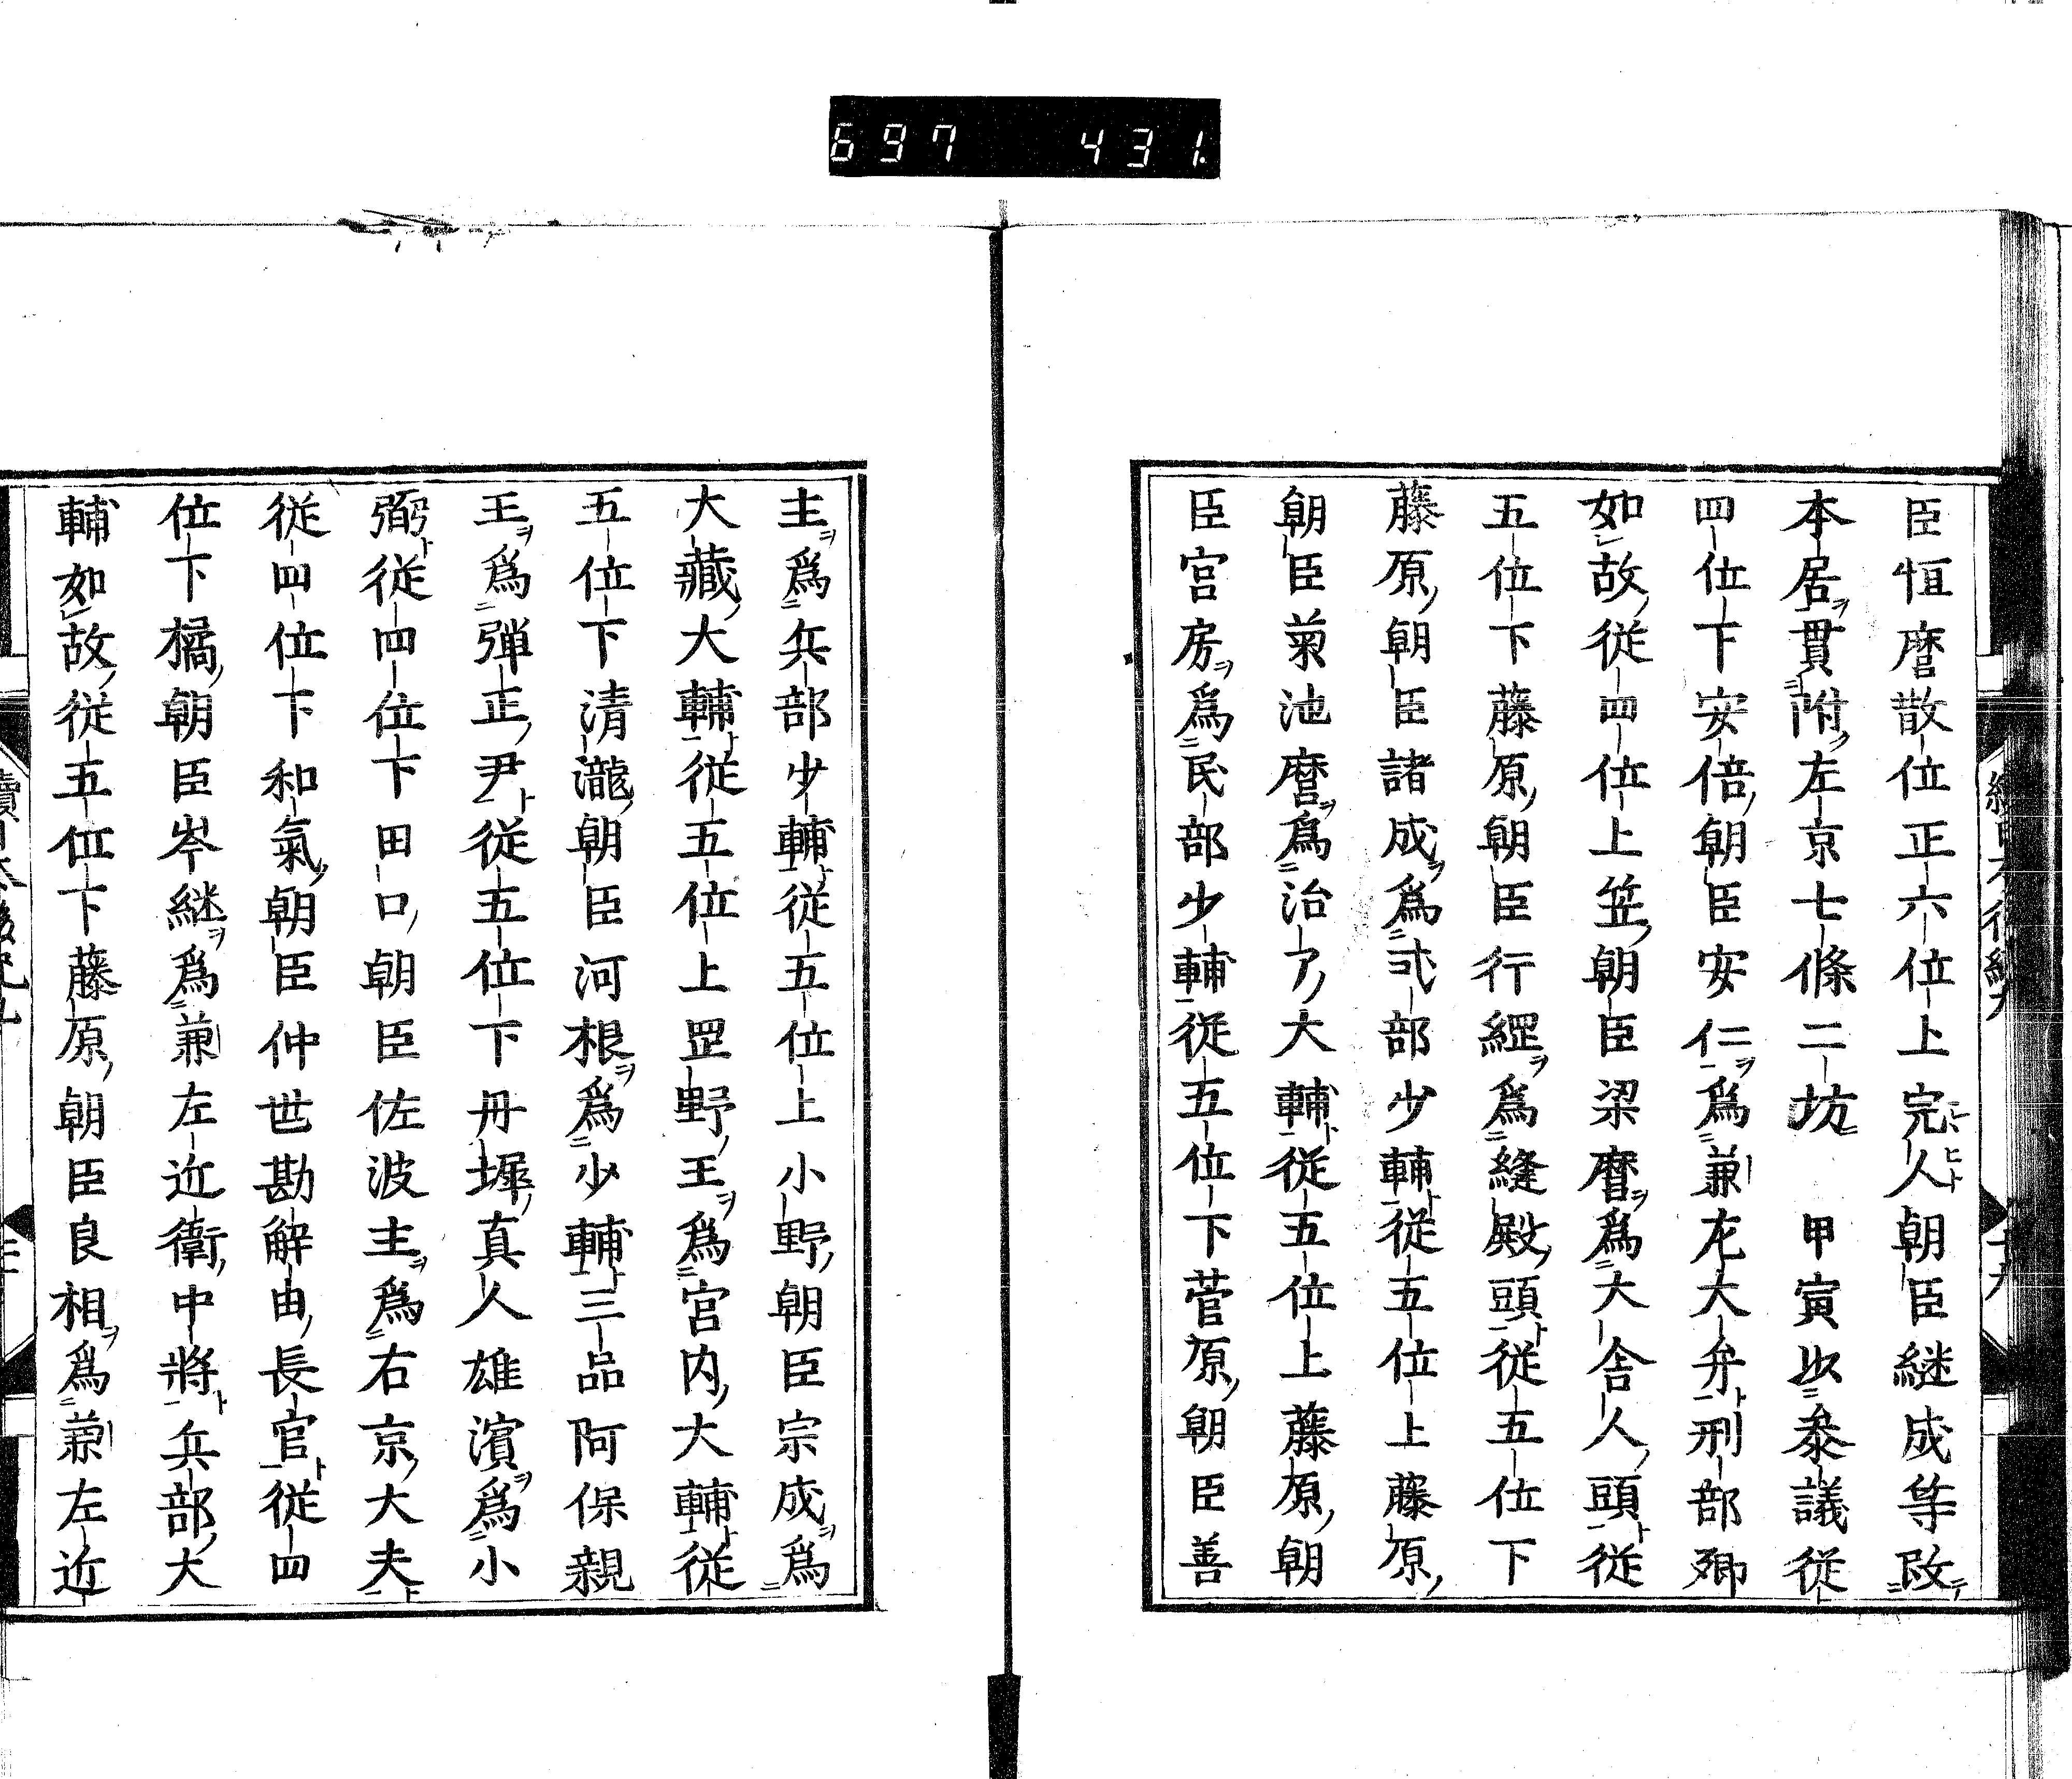 697 431
臣恒麿散位正六位上完人朝臣継成等改
本居貫附左京七條二坊 甲寅以叅議従
四位下安倍朝臣安仁爲兼左大弁刑部卿
如故従四位上笠朝臣梁麿爲大舎人頭従
五位下藤原朝臣行經爲縫殿頭従五位下
藤原朝臣諸成爲式部少輔従五位上藤原
朝臣菊池麿爲治了大輔従五位上藤原朝
臣宮房爲民部少輔従五位下菅原朝臣善
主爲兵部少輔従五位上小野朝臣宗成爲
大藏大輔従五位上罡野王爲宮内大輔従
五位下清瀧朝臣河根爲少輔三品阿保親
王爲弾正尹従五位下丹墀真人雄濱爲小
弼従四位下田口朝臣佐波主爲右京大夫
従四位下和氣朝臣仲世勘解由長官従四
位下橘朝臣岑継爲兼左近衛中將兵部大
輔如故従五位下藤原朝臣良相爲兼左近